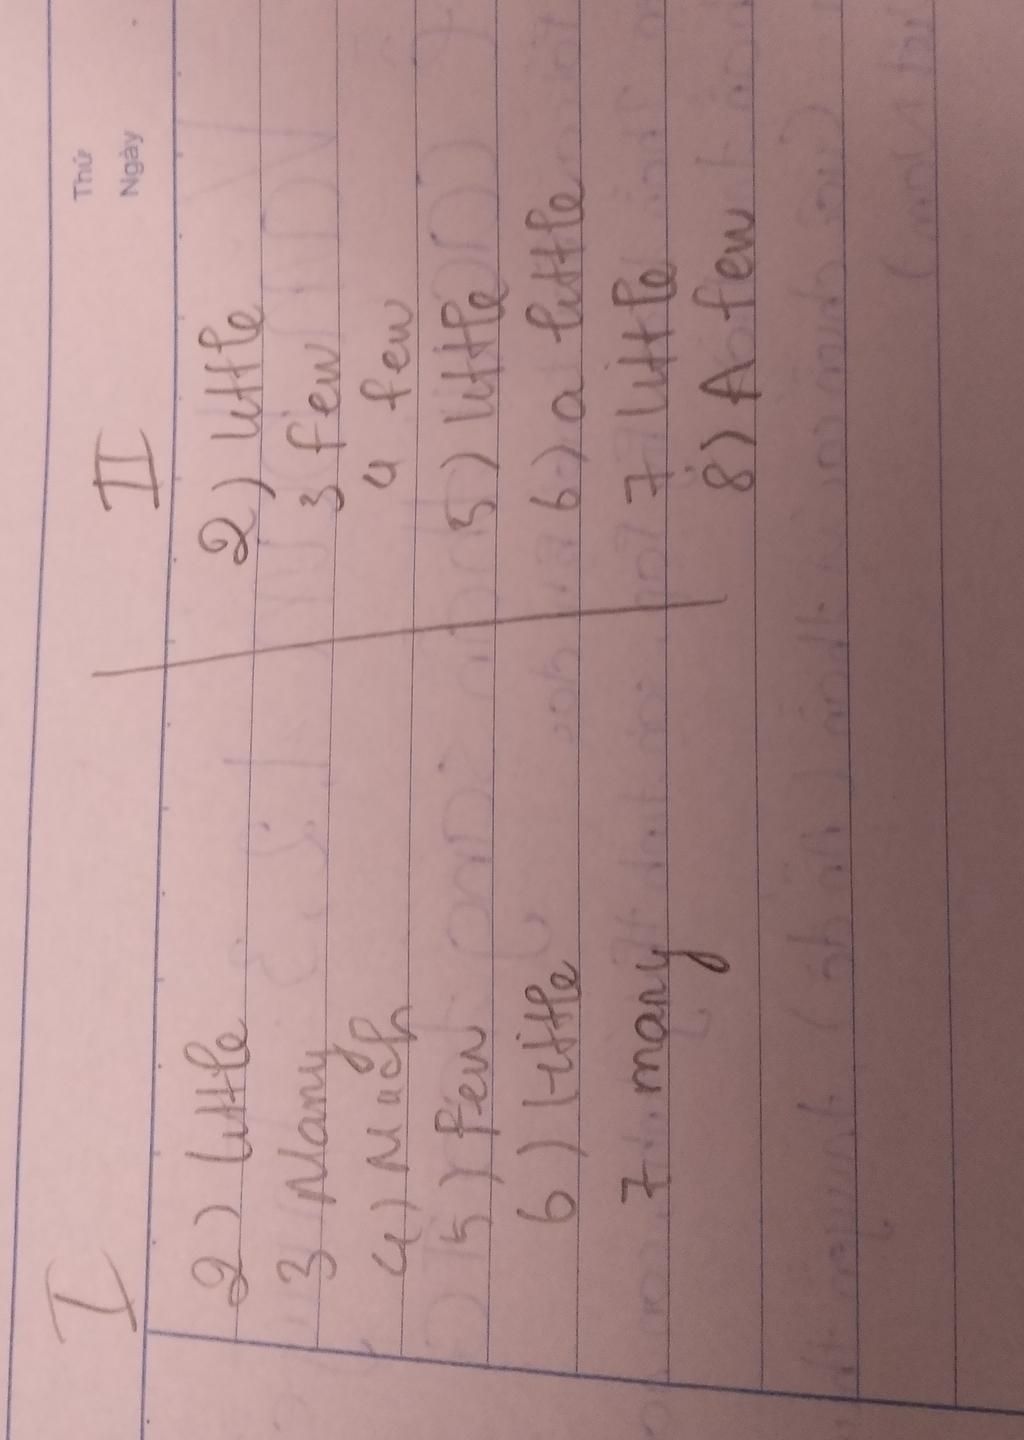 Thứ
Ngày
I
2) little
3 Many
4) Much
5) Few
6) little
7 many
II
2) little
3 few
4 few
5) little
6) a little
7 little
8) A few